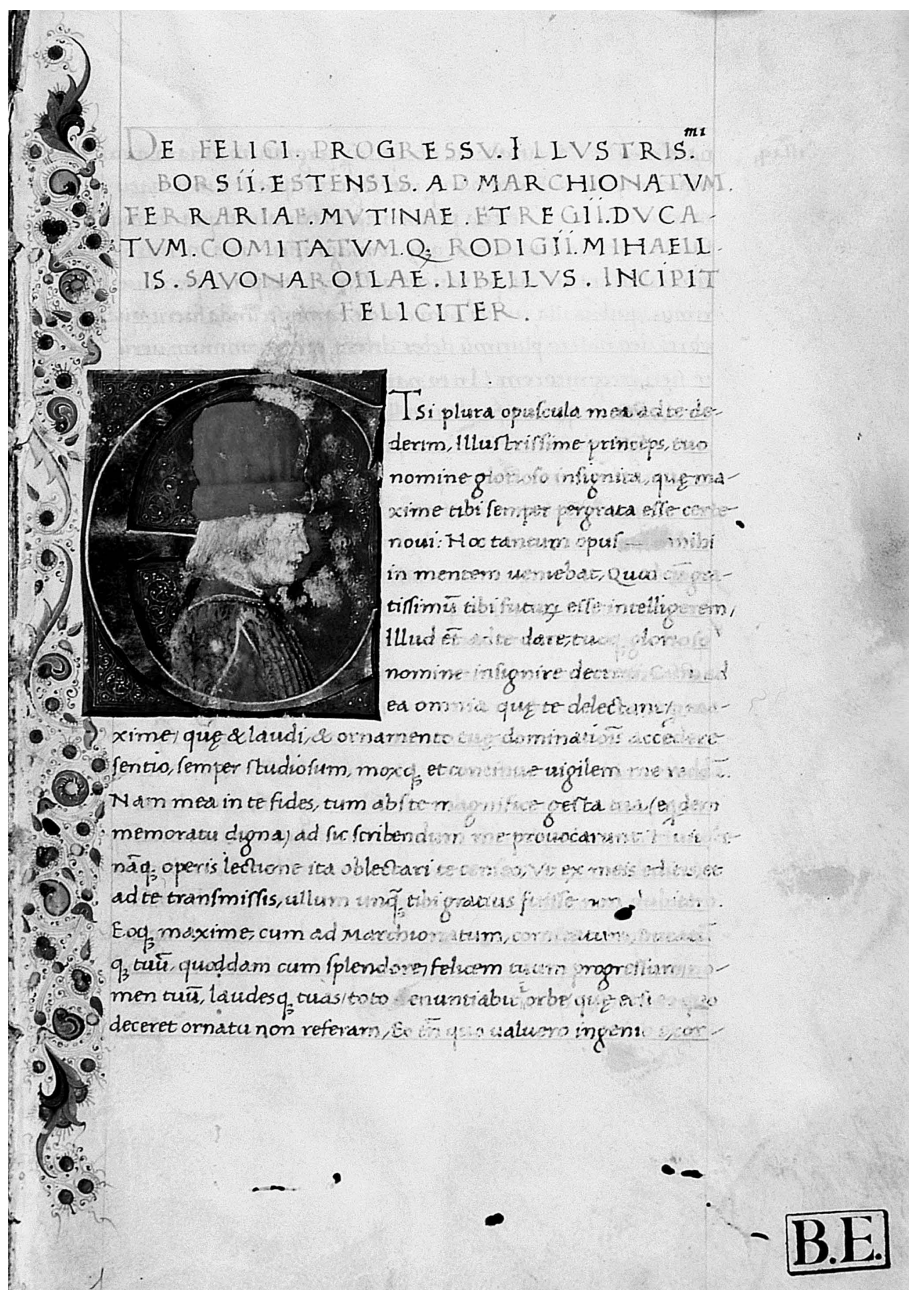 DE FELICI PROGRESSV. ILLVSTRIS.mi
BORSII. ESTENSIS. AD MARCHIONATVM.
FERRARIAE. MVTINAE. ET REGII. DVCA-
TVM. COMITATVM. Q; RODIGII. MIHAELL-
IS. SAVONAROLLAE. LIBELLVS. INCIPIT
FELICITER.
ETsi plura opuscula mea ad te de-
derim, Illustrissime princeps, tuo
nomine glorioso insignita, quę ma-
xime tibi semper pergrata esse certe
noui: Hoc tantum opus mihi
in mentem ueniebat, Quod gra-
tissimū tibi futurū esse intelligerem,
Illud et̄ ad te dare, tuoq; glorioso
nomine insignire ad
ea omnia quę te delectant,
xime, quę & laudi, & ornamento tuę dominationi accedere
sentio, semper studiosum, moxq; et continue uigilem me
Nam mea in te fides, tum abs te magnifice gesta
memoratu digna, ad sic scribendum me prouocarunt
nāq; operis lectione ita oblectari te censeo, Vt ex meis editis, et
ad te transmissis, ullum unq̄ tibi gratius fuisse non
Eoq; maxime, cum ad Marchionatum,
q; tuū, quoddam cum splendore, felicem tuum progressum
men tuū, laudesq; tuas, toto denuntiabit orbe, quę
deceret ornatu non referam, Eo quo ualuero ingenio
B.E.